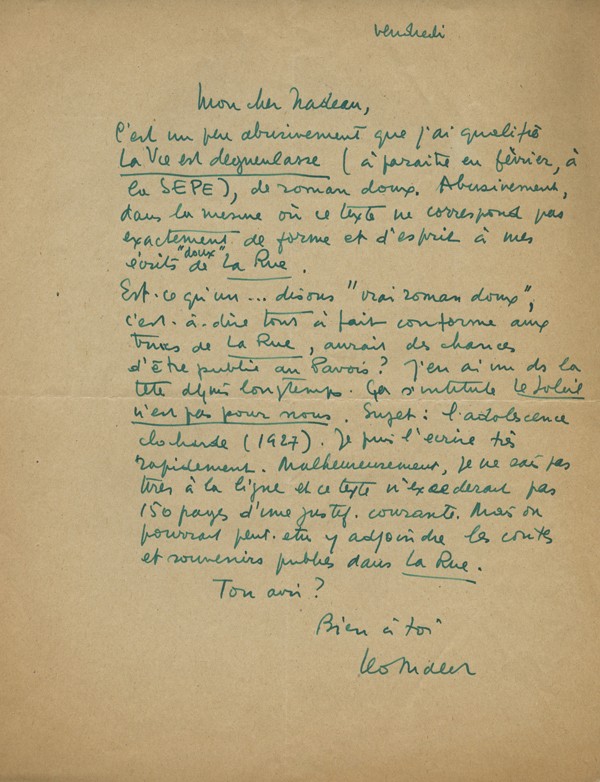 vendredi
Mon cher Nadeau,
C'est un peu abusivement que j'ai qualifié
La Vie est dégueulasse (à paraître en février, à
la SEPE), de roman doux. Abusivement,
dans la mesure où ce texte ne correspond pas
exactement de forme et d'esprit à mes
écrits "doux" de La Rue.
Est-ce qu'un... disons "vrai roman doux",
c'est-à-dire tout à fait conforme aux
trucs de La Rue, aurait des chances
d'être publié au Pavois ? J'en ai un ds la
tête depuis longtemps. Ça s'intitule Le Soleil
n'est pas pour nous. Sujet : l'adolescence
clocharde (1927). Je puis l'écrire très
rapidement. Malheureusement, je ne sais pas
tirer à la ligne et ce texte n'excéderait pas
150 pages d'une justif. courante. Mais on
pourrait peut-être y adjoindre les contes
et souvenirs publiés dans La Rue.
Ton avis ?
Bien à toi
Leo Malet